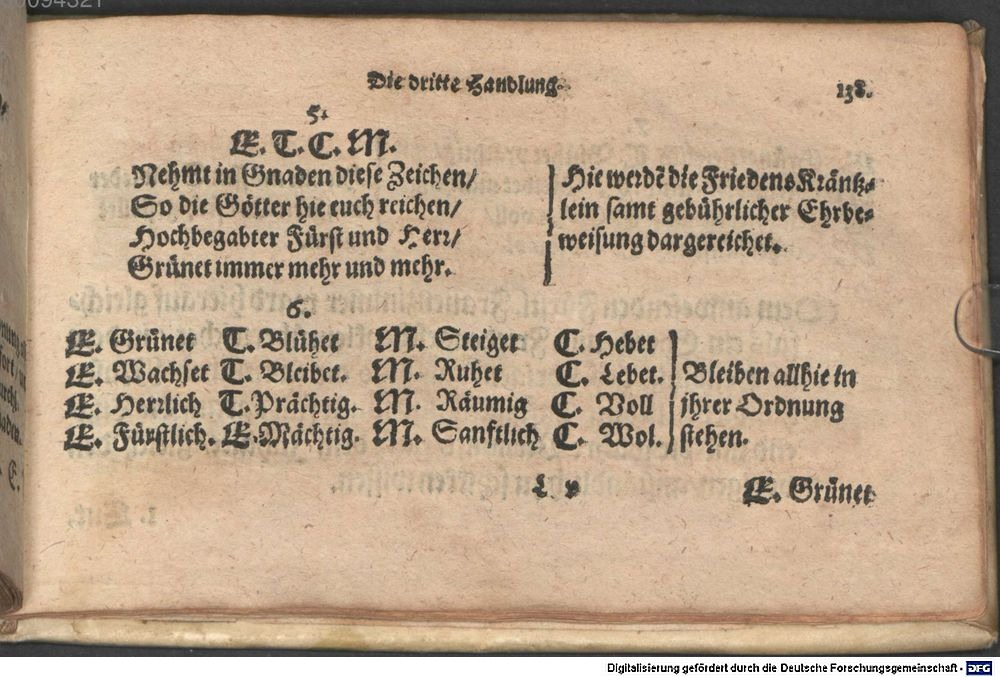 Die dritte Handlung. 138.
5.
E. T. C. M.
Nehmt in Gnaden diese Zeichen/
So die Götter hie euch reichen/
Hochbegabter Fürst und Herr/
Grünet immer mehr und mehr.
Hie werdẽ die FriedensKräntz-
lein samt gebührlicher Ehrbe-
weisung dargereichet.
6.
E. Grünet T. Blühet M. Steiget C. Hebet
E. Wachset T. Bleibet. M. Ruhet C. Lebet.
E. Herrlich T. Prächtig. M. Räumig C. Voll
E. Fürstlich. E. Mächtig. M. Sanftlich C. Wol.
Bleiben allhie in
jhrer Ordnung
stehen.
E. Grünet
Digitalisierung gefördert durch die Deutsche Forschungsgemeinschaft - DFG